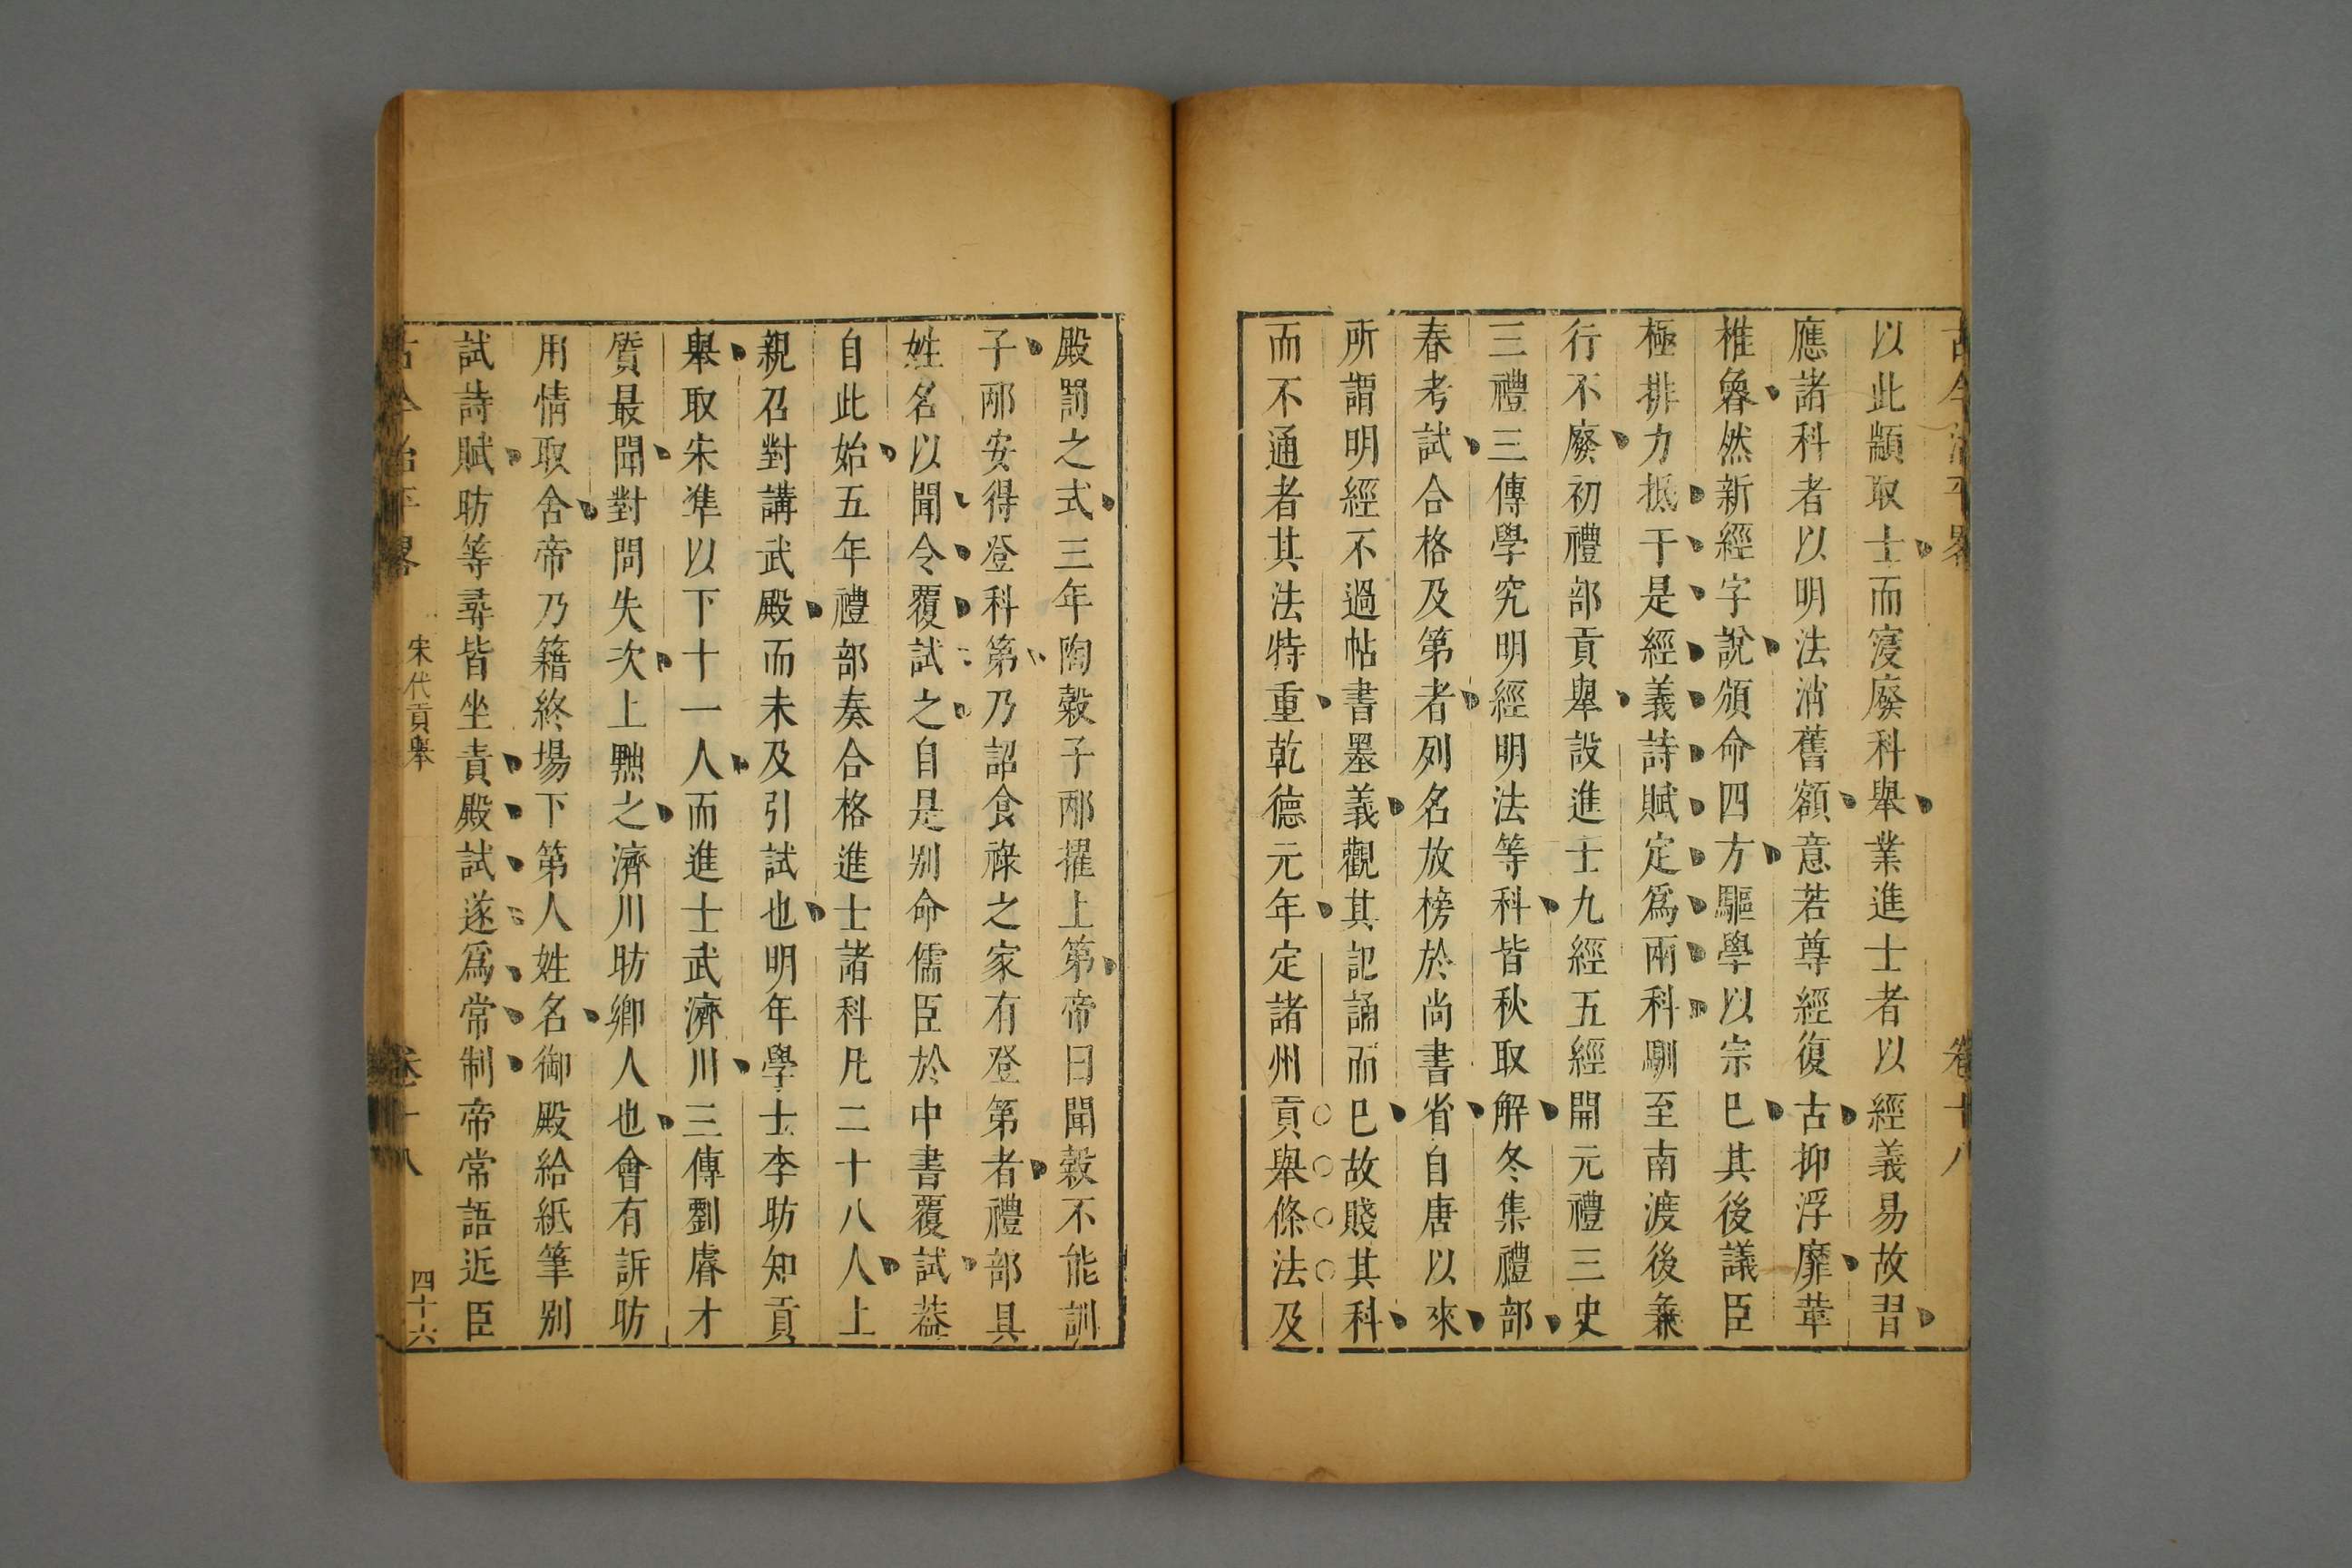 以此顓取士而寖廢科舉業進士者以經義易故習
應諸科者以明法消舊額意若尊經復古抑浮靡華
椎魯然新經字說頒命四方驅學以宗巳其後議臣
極排力抵于是經義詩賦定爲兩科馴至南渡後兼
行不廢初禮部貢舉設進士九經五經開元禮三史
三禮三傳學究明經明法等科皆秋取解冬集禮部
春考試合格及第者列名放榜於尚書省自唐以來
所謂明經不過帖書墨義觀其記誦而巳故賤其科
而不通者其法特重乾德元年定諸州貢舉條法及
殿罰之式三年陶穀子邴擢上第帝曰聞穀不能訓
子邴安得登科第乃詔食祿之家有登第者禮部具
姓名以聞令覆試之自是別命儒臣於中書覆試葢
自此始五年禮部奏合格進士諸科凡二十八人上
親召對講武殿而未及引試也明年學士李昉知貢
舉取宋準以下十一人而進士武濟川三傳劉睿才
質最聞對問失次上黜之濟川昉鄉人也會有訴昉
用情取舍帝乃籍終場下第人姓名御殿給紙筆別
試詩賦昉等尋皆坐責殿試遂爲常制帝常語近臣
古今治平畧
宋代貢舉
卷十八
四十六